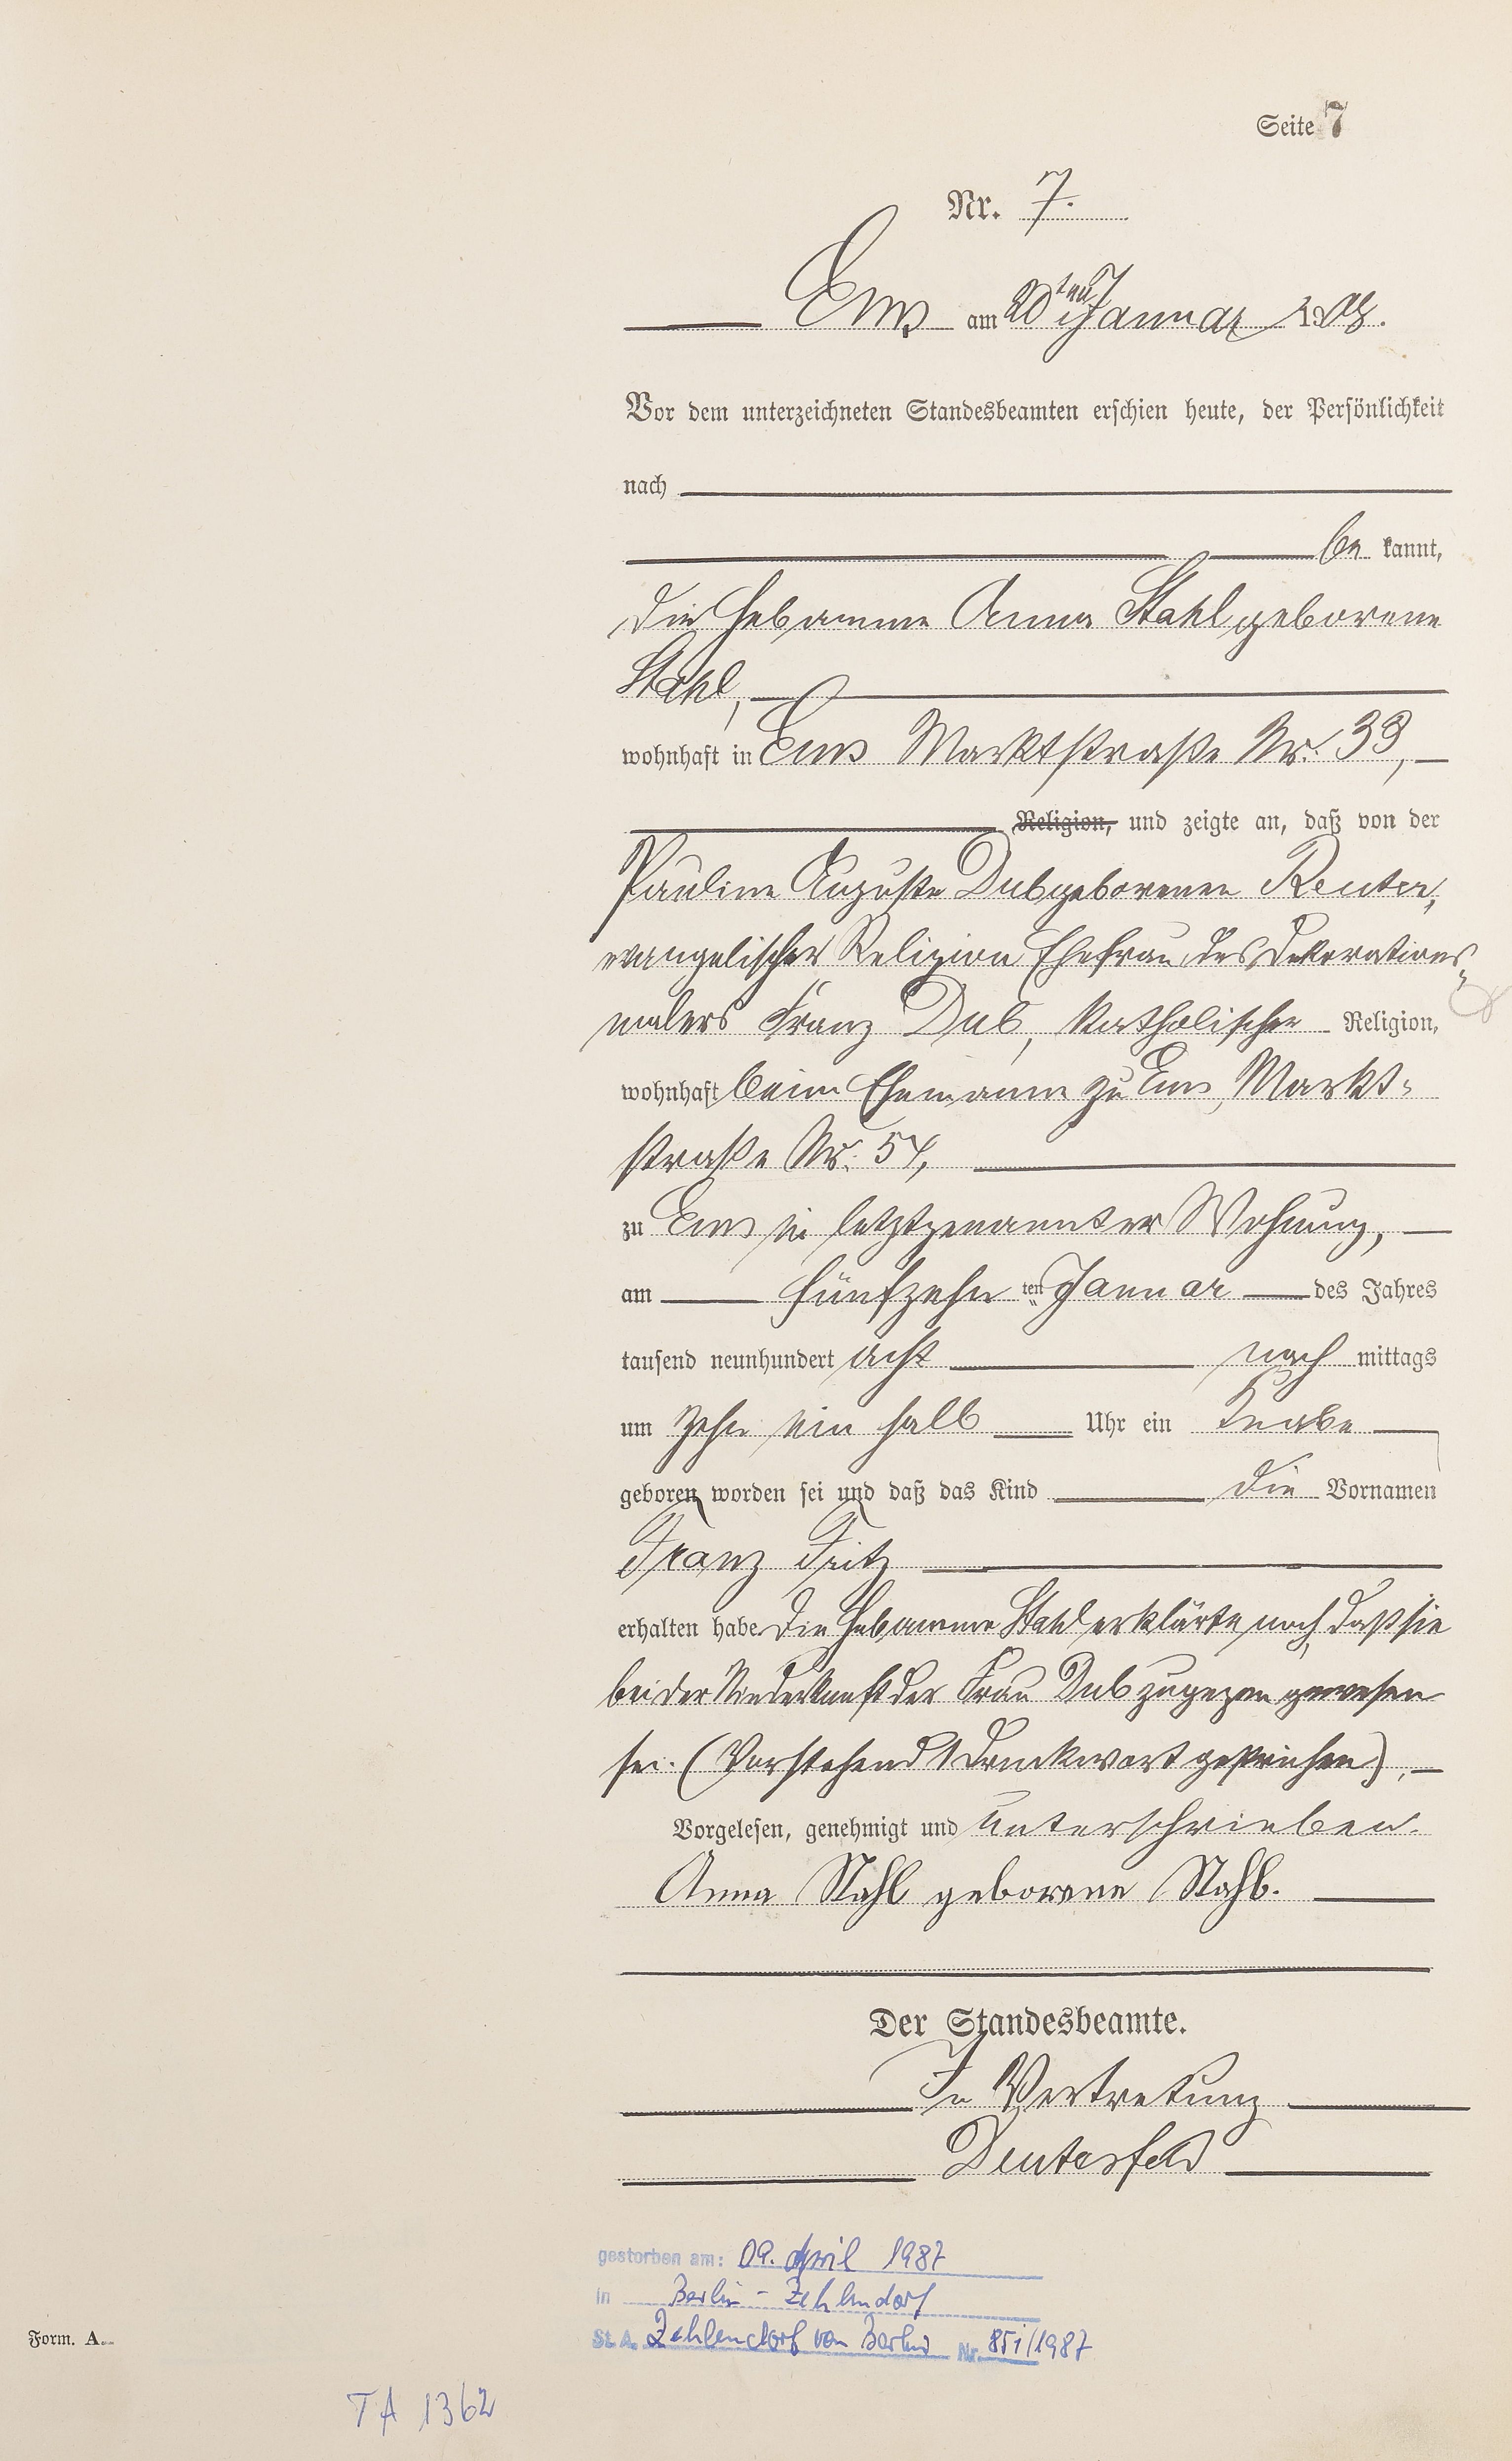 Seite 7
Nr. 7.
Ems am 20ten Januar 1908.
Vor dem unterzeichneten Standesbeamten erschien heute, der Persönlichkeit
nach
be kannt,
die Hebamme Anna Stahl geborene
Stahl,
wohnhaft in Ems Marktstraße Nr. 39,
Religion, und zeigte an, daß von der
Pauline Auguste Dub geborenen Reuter,
evangelischer Religion Ehefrau des Dekorations-
malers Franz Dub, katholischer Religion,
wohnhaft beim Ehemanne zu Ems, Markt-
straße Nr. 54,
zu Ems in letztgenannter Wohnung,
am fünfzehn ten Januar des Jahres
tausend neunhundert acht nach mittags
um zehn ein halb Uhr ein Knabe
geboren worden sei und daß das Kind die Vornamen
Franz Fritz
erhalten habe. Die Hebamme Stahl erklärte noch, daß sie
bei der Niederkunft der Frau Dub zugegen gewesen
sei. (Vorstehend 1 Druckwort gestrichen).
Vorgelesen, genehmigt und unterschrieben.
Anna Stahl geborene Stahl.
Der Standesbeamte.
In Vertretung
gestorben am: 09. April 1987
in Berlin - Zehlendorf
St. A. Zehlendorf von Berlin Nr. /1987
Form. A.
TA 1362